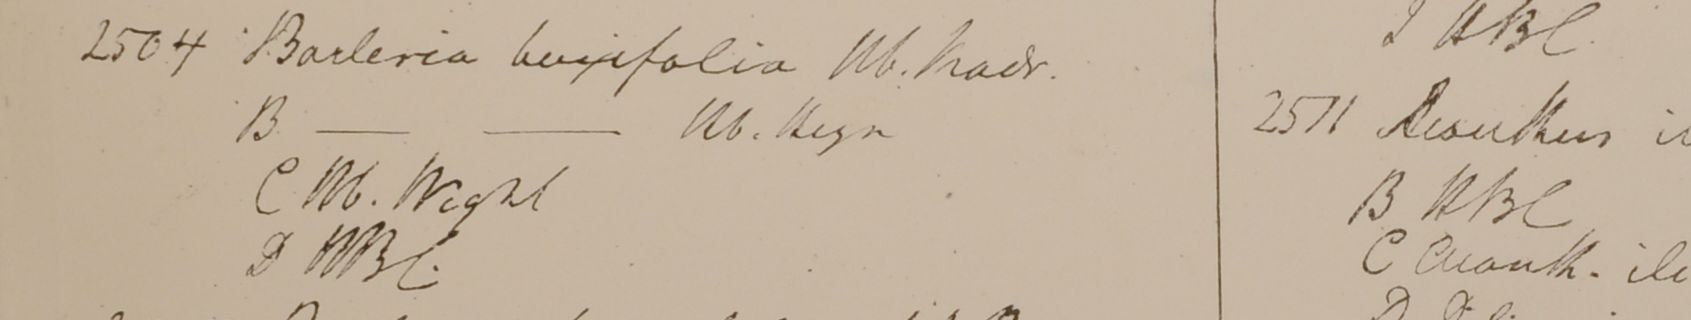 2504 Barleria buxifolia Hb. Madr.
B — — Hb. Heyn
C Hb. Wight
D HBC.
I HBC.
2511 Acanthus il
B HBC
C Acanth. ili